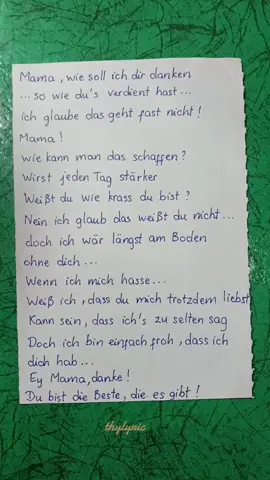 Mama, wie soll ich dir danken
...so wie du's verdient hast...
ich glaube das geht fast nicht!
Mama!
wie kann man das schaffen?
Wirst jeden Tag stärker
Weißt du wie krass du bist?
Nein ich glaub das weißt du nicht...
doch ich wär längst am Boden
ohne dich...
Wenn ich mich hasse...
Weiß ich, dass du mich trotzdem liebst
Kann sein, dass ich's zu selten sag
Doch ich bin einfach froh, dass ich
dich hab...
Ey Mama, danke!
Du bist die Beste, die es gibt!
thylyric